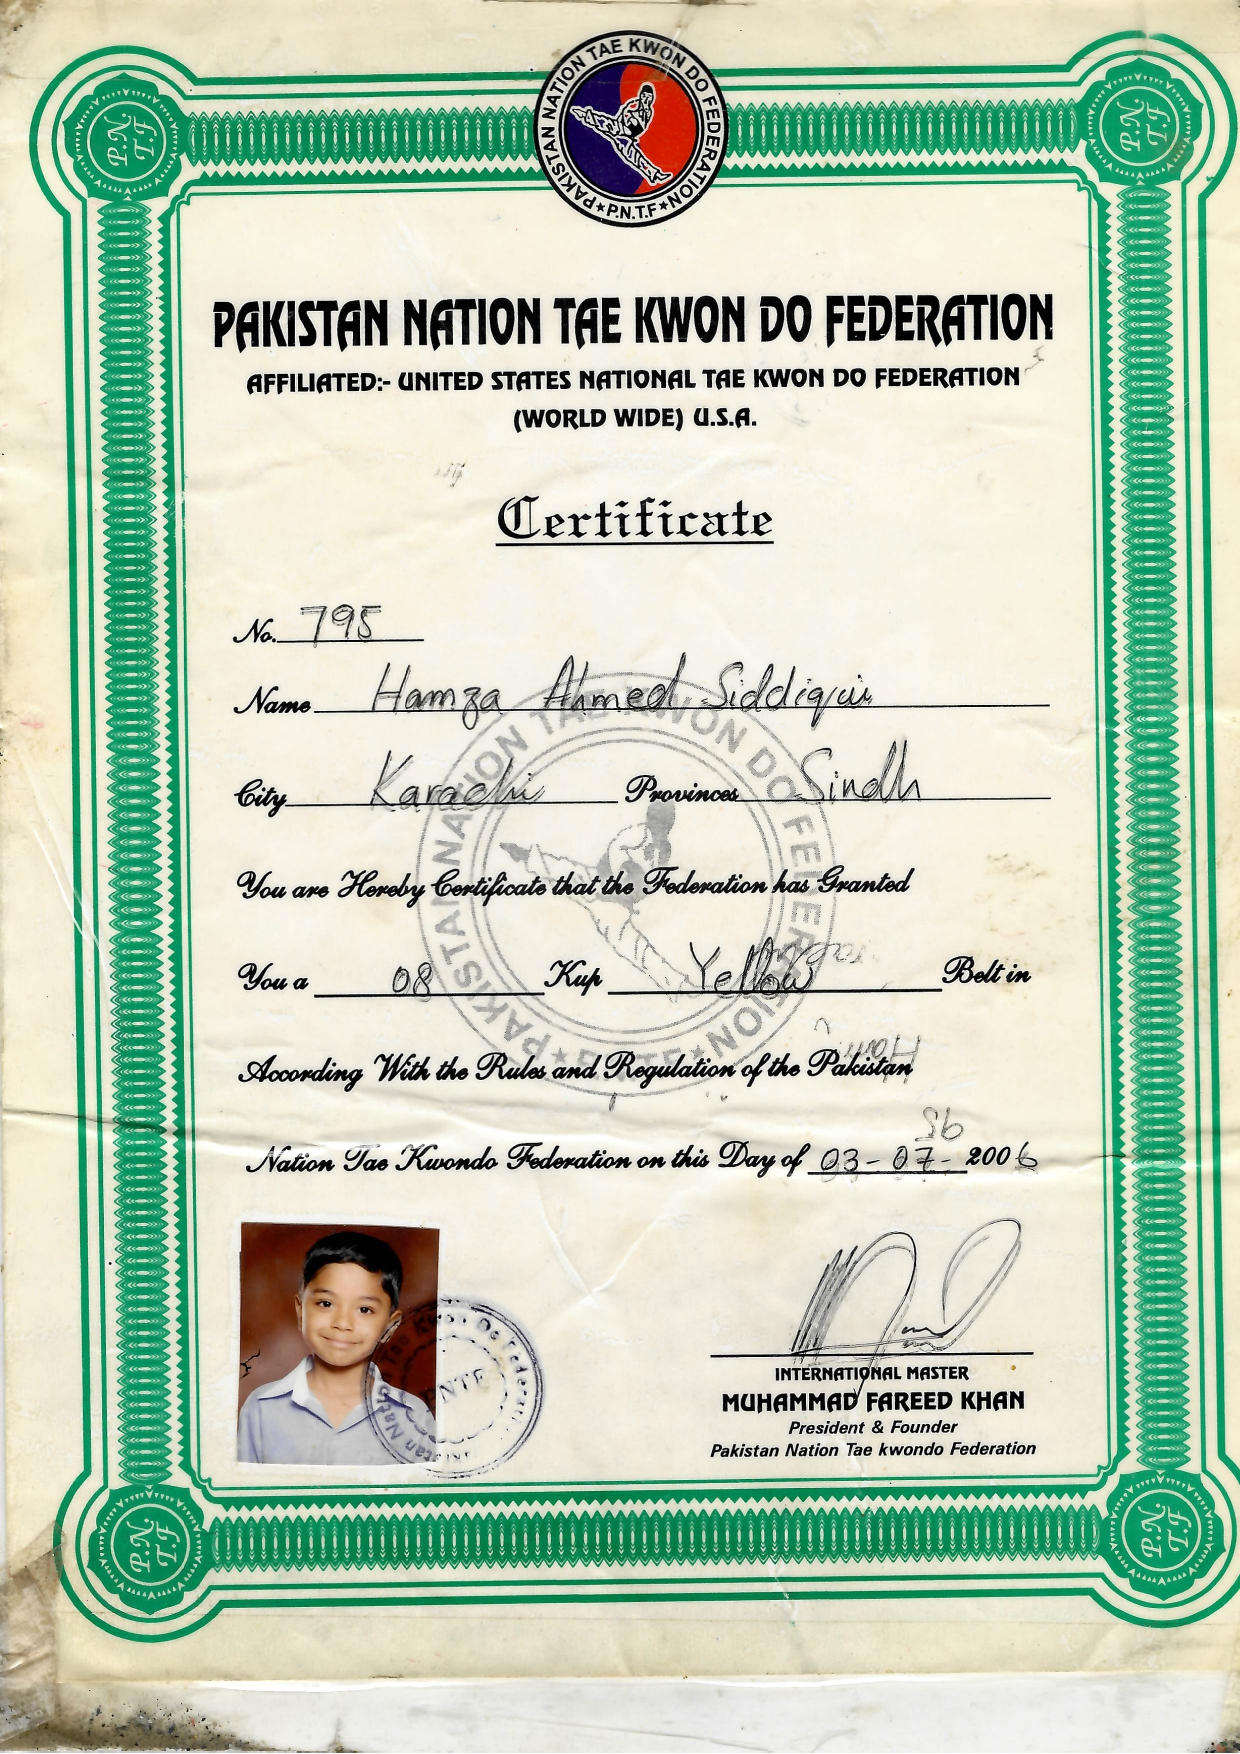 PAKISTAN NATION TAE KWON DO FEDERATION
★P.N.T.F★
P.N.
T.F
P.N.
T.F
PAKISTAN NATION TAE KWON DO FEDERATION
AFFILIATED:- UNITED STATES NATIONAL TAE KWON DO FEDERATION
(WORLD WIDE) U.S.A.
Certificate
No. 795
Name Hamza Ahmed Siddiqui
City Karachi Provinces Sindh
You are Hereby Certificate that the Federation has Granted
You a 08 Kup Yellow Belt in
According With the Rules and Regulation of the Pakistan
Nation Tae Kwondo Federation on this Day of 03-07-2006
PAKISTAN NATION TAE KWON DO FEDERATION
PNTF
INTERNATIONAL MASTER
MUHAMMAD FAREED KHAN
President & Founder
Pakistan Nation Tae kwondo Federation
P.N.
T.F
P.N.
T.F